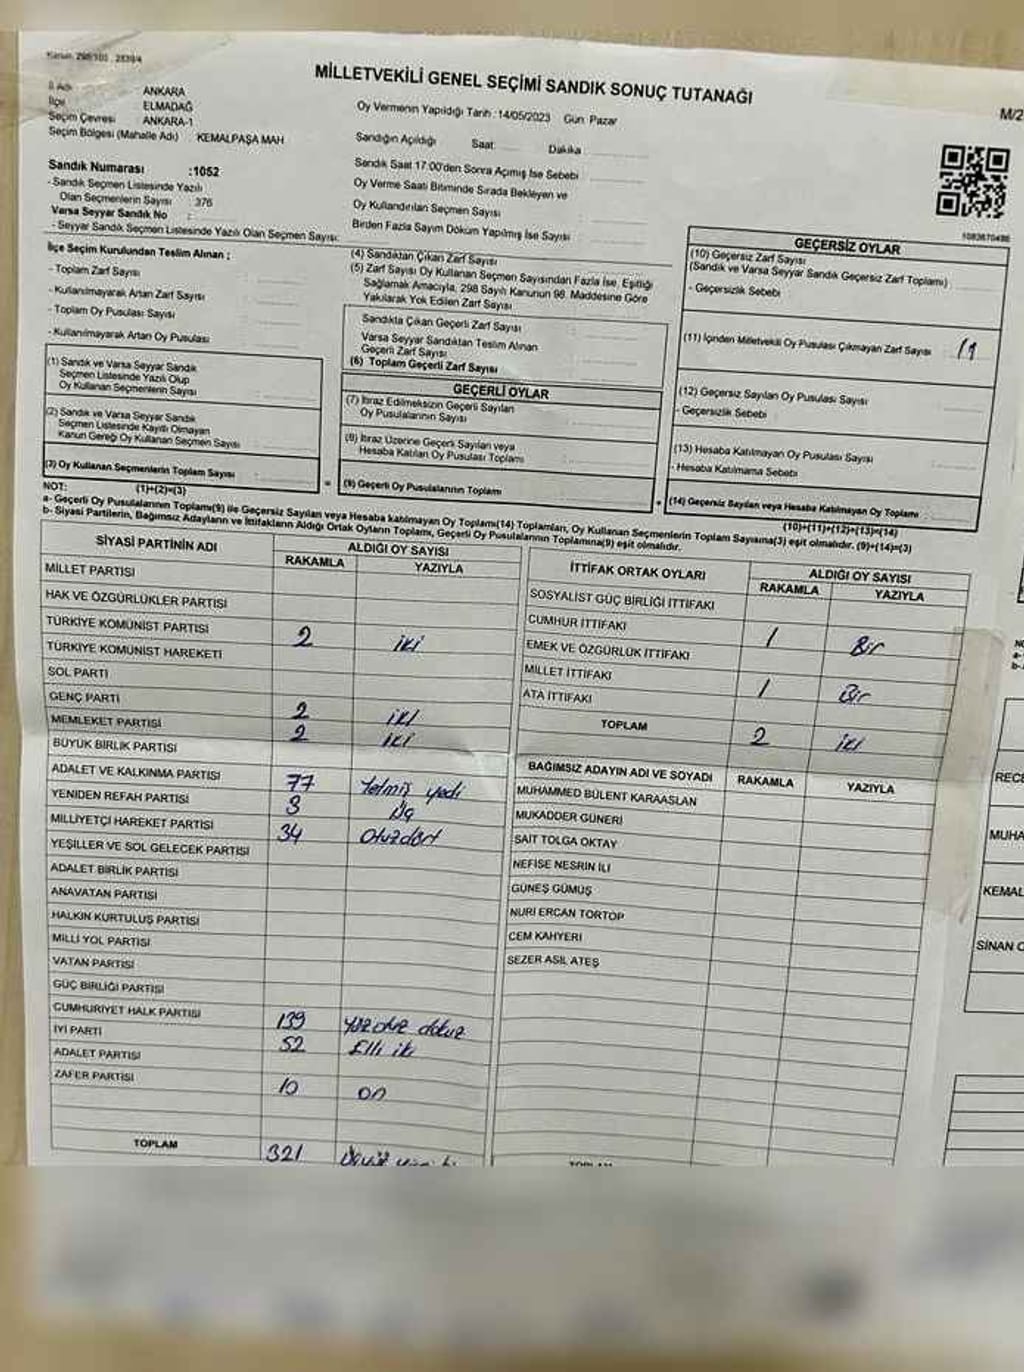 Kanun: 298/105 , 2839/4
MİLLETVEKİLİ GENEL SEÇİMİ SANDIK SONUÇ TUTANAĞI
M/2
İl Adı ANKARA
İlçe ELMADAĞ
Seçim Çevresi ANKARA-1
Seçim Bölgesi (Mahalle Adı) KEMALPAŞA MAH
Oy Vermenin Yapıldığı Tarih : 14/05/2023 Gün: Pazar
Sandığın Açıldığı Saat: Dakika :
Sandık Saat 17:00'den Sonra Açımış İse Sebebi :
Oy Verme Saati Bitiminde Sırada Bekleyen ve
Oy Kullandırılan Seçmen Sayısı :
Birden Fazla Sayım Döküm Yapılmış İse Sayısı :
Sandık Numarası :1052
- Sandık Seçmen Listesinde Yazılı
Olan Seçmenlerin Sayısı : 376
Varsa Seyyar Sandık No :
- Seyyar Sandık Seçmen Listesinde Yazılı Olan Seçmen Sayısı:
İlçe Seçim Kurulundan Teslim Alınan ;
- Toplam Zarf Sayısı :
- Kullanılmayarak Artan Zarf Sayısı :
- Toplam Oy Pusulası Sayısı :
- Kullanılmayarak Artan Oy Pusulası :
(1) Sandık ve Varsa Seyyar Sandık
Seçmen Listesinde Yazılı Olup
Oy Kullanan Seçmenlerin Sayısı :
(2) Sandık ve Varsa Seyyar Sandık
Seçmen Listesinde Kayıtlı Olmayan
Kanun Gereği Oy Kullanan Seçmen Sayısı :
(3) Oy Kullanan Seçmenlerin Toplam Sayısı :
(1)+(2)=(3)
(4) Sandıktan Çıkan Zarf Sayısı :
(5) Zarf Sayısı Oy Kullanan Seçmen Sayısından Fazla İse, Eşitliği
Sağlamak Amacıyla, 298 Sayılı Kanunun 98. Maddesine Göre
Yakılarak Yok Edilen Zarf Sayısı :
Sandıkta Çıkan Geçerli Zarf Sayısı :
Varsa Seyyar Sandıktan Teslim Alınan
Geçerli Zarf Sayısı :
(6) Toplam Geçerli Zarf Sayısı :
GEÇERLİ OYLAR
(7) İtiraz Edilmeksizin Geçerli Sayılan
Oy Pusulalarının Sayısı :
(8) İtiraz Üzerine Geçerli Sayılan veya
Hesaba Katılan Oy Pusulası Toplamı :
= (9) Geçerli Oy Pusulalarının Toplamı :
1083670486
GEÇERSİZ OYLAR
(10) Geçersiz Zarf Sayısı
(Sandık ve Varsa Seyyar Sandık Geçersiz Zarf Toplamı)
- Geçersizlik Sebebi :
(11) İçinden Milletvekili Oy Pusulası Çıkmayan Zarf Sayısı :
(12) Geçersiz Sayılan Oy Pusulası Sayısı :
- Geçersizlik Sebebi :
(13) Hesaba Katılmayan Oy Pusulası Sayısı :
- Hesaba Katılmama Sebebi :
+ (14) Geçersiz Sayılan veya Hesaba Katılmayan Oy Toplamı :
(10)+(11)+(12)+(13)=(14)
NOT:
a- Geçerli Oy Pusulalarının Toplamı(9) ile Geçersiz Sayılan veya Hesaba katılmayan Oy Toplamı(14) Toplamları, Oy Kullanan Seçmenlerin Toplam Sayısına(3) eşit olmalıdır. (9)+(14)=(3)
b- Siyasi Partilerin, Bağımsız Adayların ve İttifakların Aldığı Ortak Oyların Toplamı, Geçerli Oy Pusulalarının Toplamına(9) eşit olmalıdır.
SİYASİ PARTİNİN ADI ALDIĞI OY SAYISI
RAKAMLA YAZIYLA
MİLLET PARTİSİ
HAK VE ÖZGÜRLÜKLER PARTİSİ
TÜRKİYE KOMÜNİST PARTİSİ 2 iki
TÜRKİYE KOMÜNİST HAREKETİ
SOL PARTİ
GENÇ PARTİ 2 iki
MEMLEKET PARTİSİ 2 iki
BÜYÜK BİRLİK PARTİSİ
ADALET VE KALKINMA PARTİSİ 77 Yetmiş yedi
YENİDEN REFAH PARTİSİ 3 Üç
MİLLİYETÇİ HAREKET PARTİSİ 34 Otuzdört
YEŞİLLER VE SOL GELECEK PARTİSİ
ADALET BİRLİK PARTİSİ
ANAVATAN PARTİSİ
HALKIN KURTULUŞ PARTİSİ
MİLLİ YOL PARTİSİ
VATAN PARTİSİ
GÜÇ BİRLİĞİ PARTİSİ
CUMHURİYET HALK PARTİSİ 139 Yüz otuz dokuz
İYİ PARTİ 52 Elli iki
ADALET PARTİSİ
ZAFER PARTİSİ 10 on
TOPLAM 321
İTTİFAK ORTAK OYLARI ALDIĞI OY SAYISI
RAKAMLA YAZIYLA
SOSYALİST GÜÇ BİRLİĞİ İTTİFAKI
CUMHUR İTTİFAKI 1 Bir
EMEK VE ÖZGÜRLÜK İTTİFAKI
MİLLET İTTİFAKI 1 Bir
ATA İTTİFAKI
TOPLAM 2 iki
BAĞIMSIZ ADAYIN ADI VE SOYADI RAKAMLA YAZIYLA
MUHAMMED BÜLENT KARAASLAN
MUKADDER GÜNERİ
SAİT TOLGA OKTAY
NEFİSE NESRİN İLİ
GÜNEŞ GÜMÜŞ
NURİ ERCAN TORTOP
CEM KAHYERİ
SEZER ASIL ATEŞ
TOPLAM
RECE
MUHA
KEMAL
SİNAN O